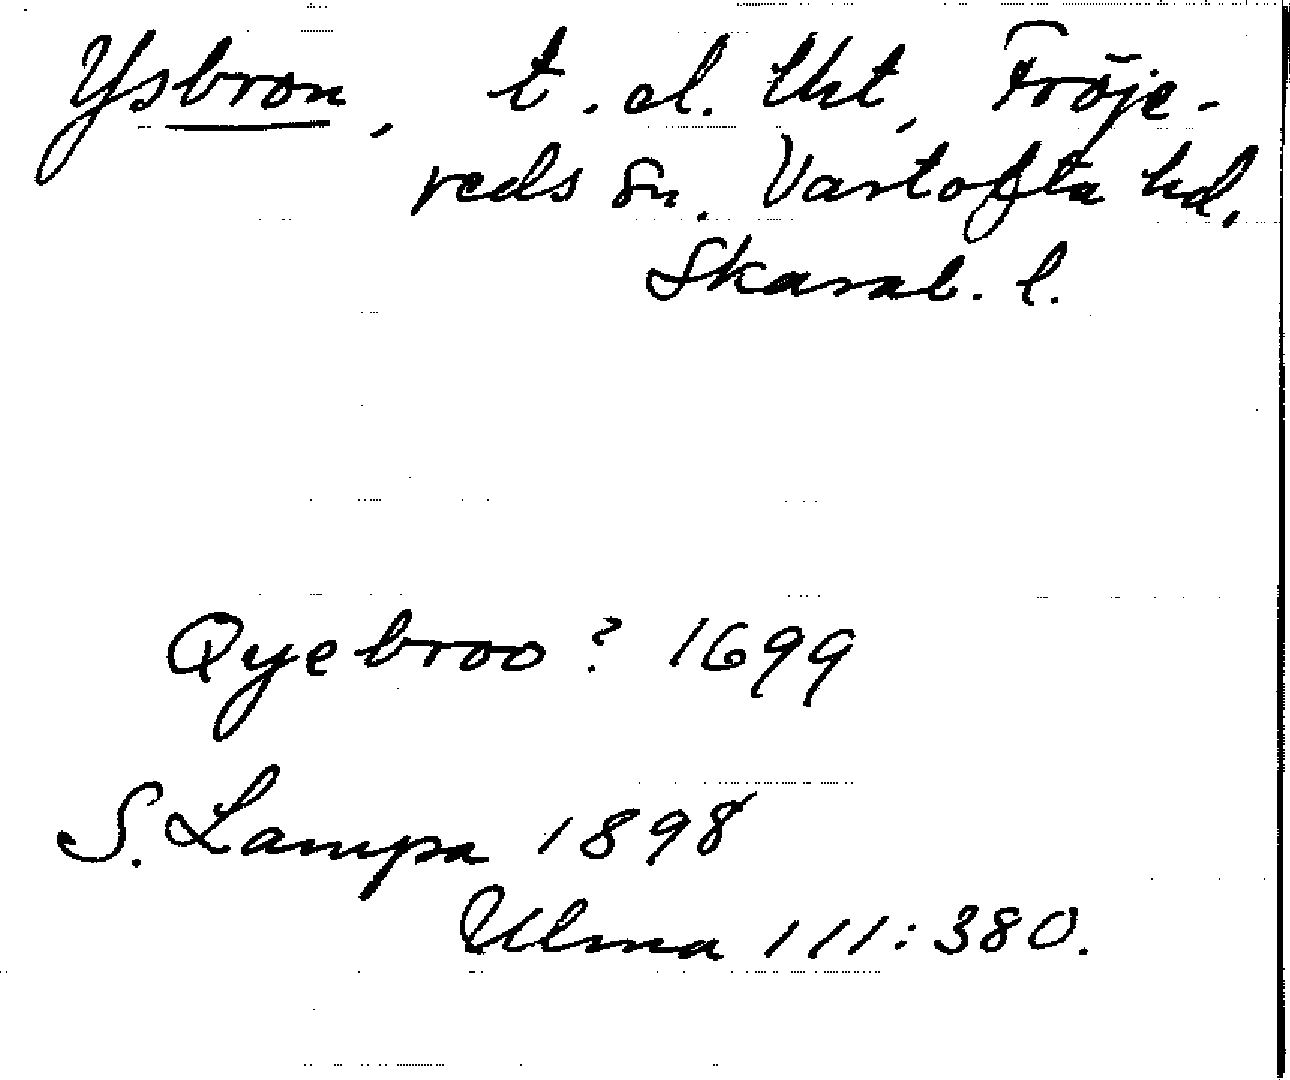 Ysbron, t. el. lht, Fröje-
reds sn. Vartofta hd,
Skarab. l.
Qyebroo? 1699
S. Lampa 1898
Ulma 111:380.